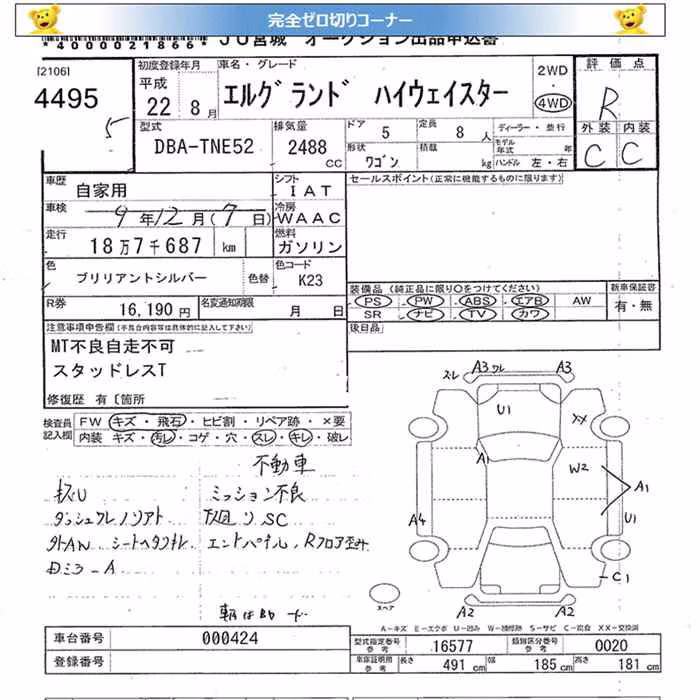 完全ゼロ切りコーナー
*4000021866* JU宮城 オークション出品申込書
[2106]
4495
初度登録年月
平成
22 8月
車名・グレード
エルグランド ハイウェイスター
2WD
・
4WD
評価点
R
外装 内装
C C
型式
DBA-TNE52
排気量
2488
CC
ドア 5
定員 8 人
ディーラー・並行
形状
ワゴン
積載
kg
モデル年式 年
ハンドル 左・右
車歴
自家用
シフト
IAT
セールスポイント(正常に機能するものに限ります)
車検
9年12月(7日)
冷房
WAAC
走行
18万7千687 km
燃料
ガソリン
色
ブリリアントシルバー
色替
色コード
K23
装備品 (純正品に限り○をつけてください)
新車保証書
PS PW ABS エアB AW
有・無
SR ナビ TV カワ
R券
16,190円
名変通知期限
月 日
後日品
注意事項申告欄(不具合内容等は具体的に記入して下さい)
MT不良自走不可
スタッドレスT
修復歴 有〔箇所
検査員記入欄
FW キズ・飛石・ヒビ割・リペア跡・×要
内装 キズ・汚レ・コゲ・穴・スレ・キレ・破レ
不動車
ミッション不良
下廻りSC
エンドパネル、Rフロア歪み
キズU
外AN
A3 ワレ A3
U1
XX
A1
W2
A1
A4
U1
C1
スペア
A2 A2
A-キズ E-エクボ U-凹み W-補修跡 S-サビ C-腐食 XX-交換済
車台番号
000424
登録番号
型式指定番号
参考
16577
類別区分番号
参考
0020
車庫証明用
参考
長さ 491 cm
幅 185 cm
高さ 181 cm